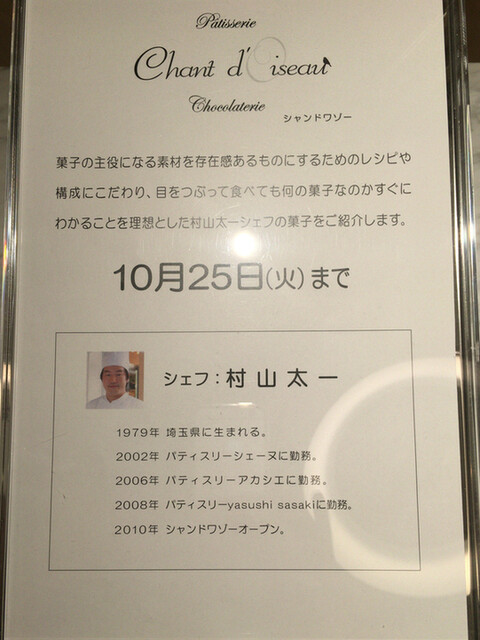 Pâtisserie
Chant d'Oiseau
Chocolaterie
シャンドワゾー
菓子の主役になる素材を存在感あるものにするためのレシピや
構成にこだわり、目をつぶって食べても何の菓子なのかすぐに
わかることを理想とした村山太一シェフの菓子をご紹介します。
10月25日(火)まで
シェフ：村山太一
1979年 埼玉県に生まれる。
2002年 パティスリーシェーヌに勤務。
2006年 パティスリーアカシエに勤務。
2008年 パティスリーyasushi sasakiに勤務。
2010年 シャンドワゾーオープン。